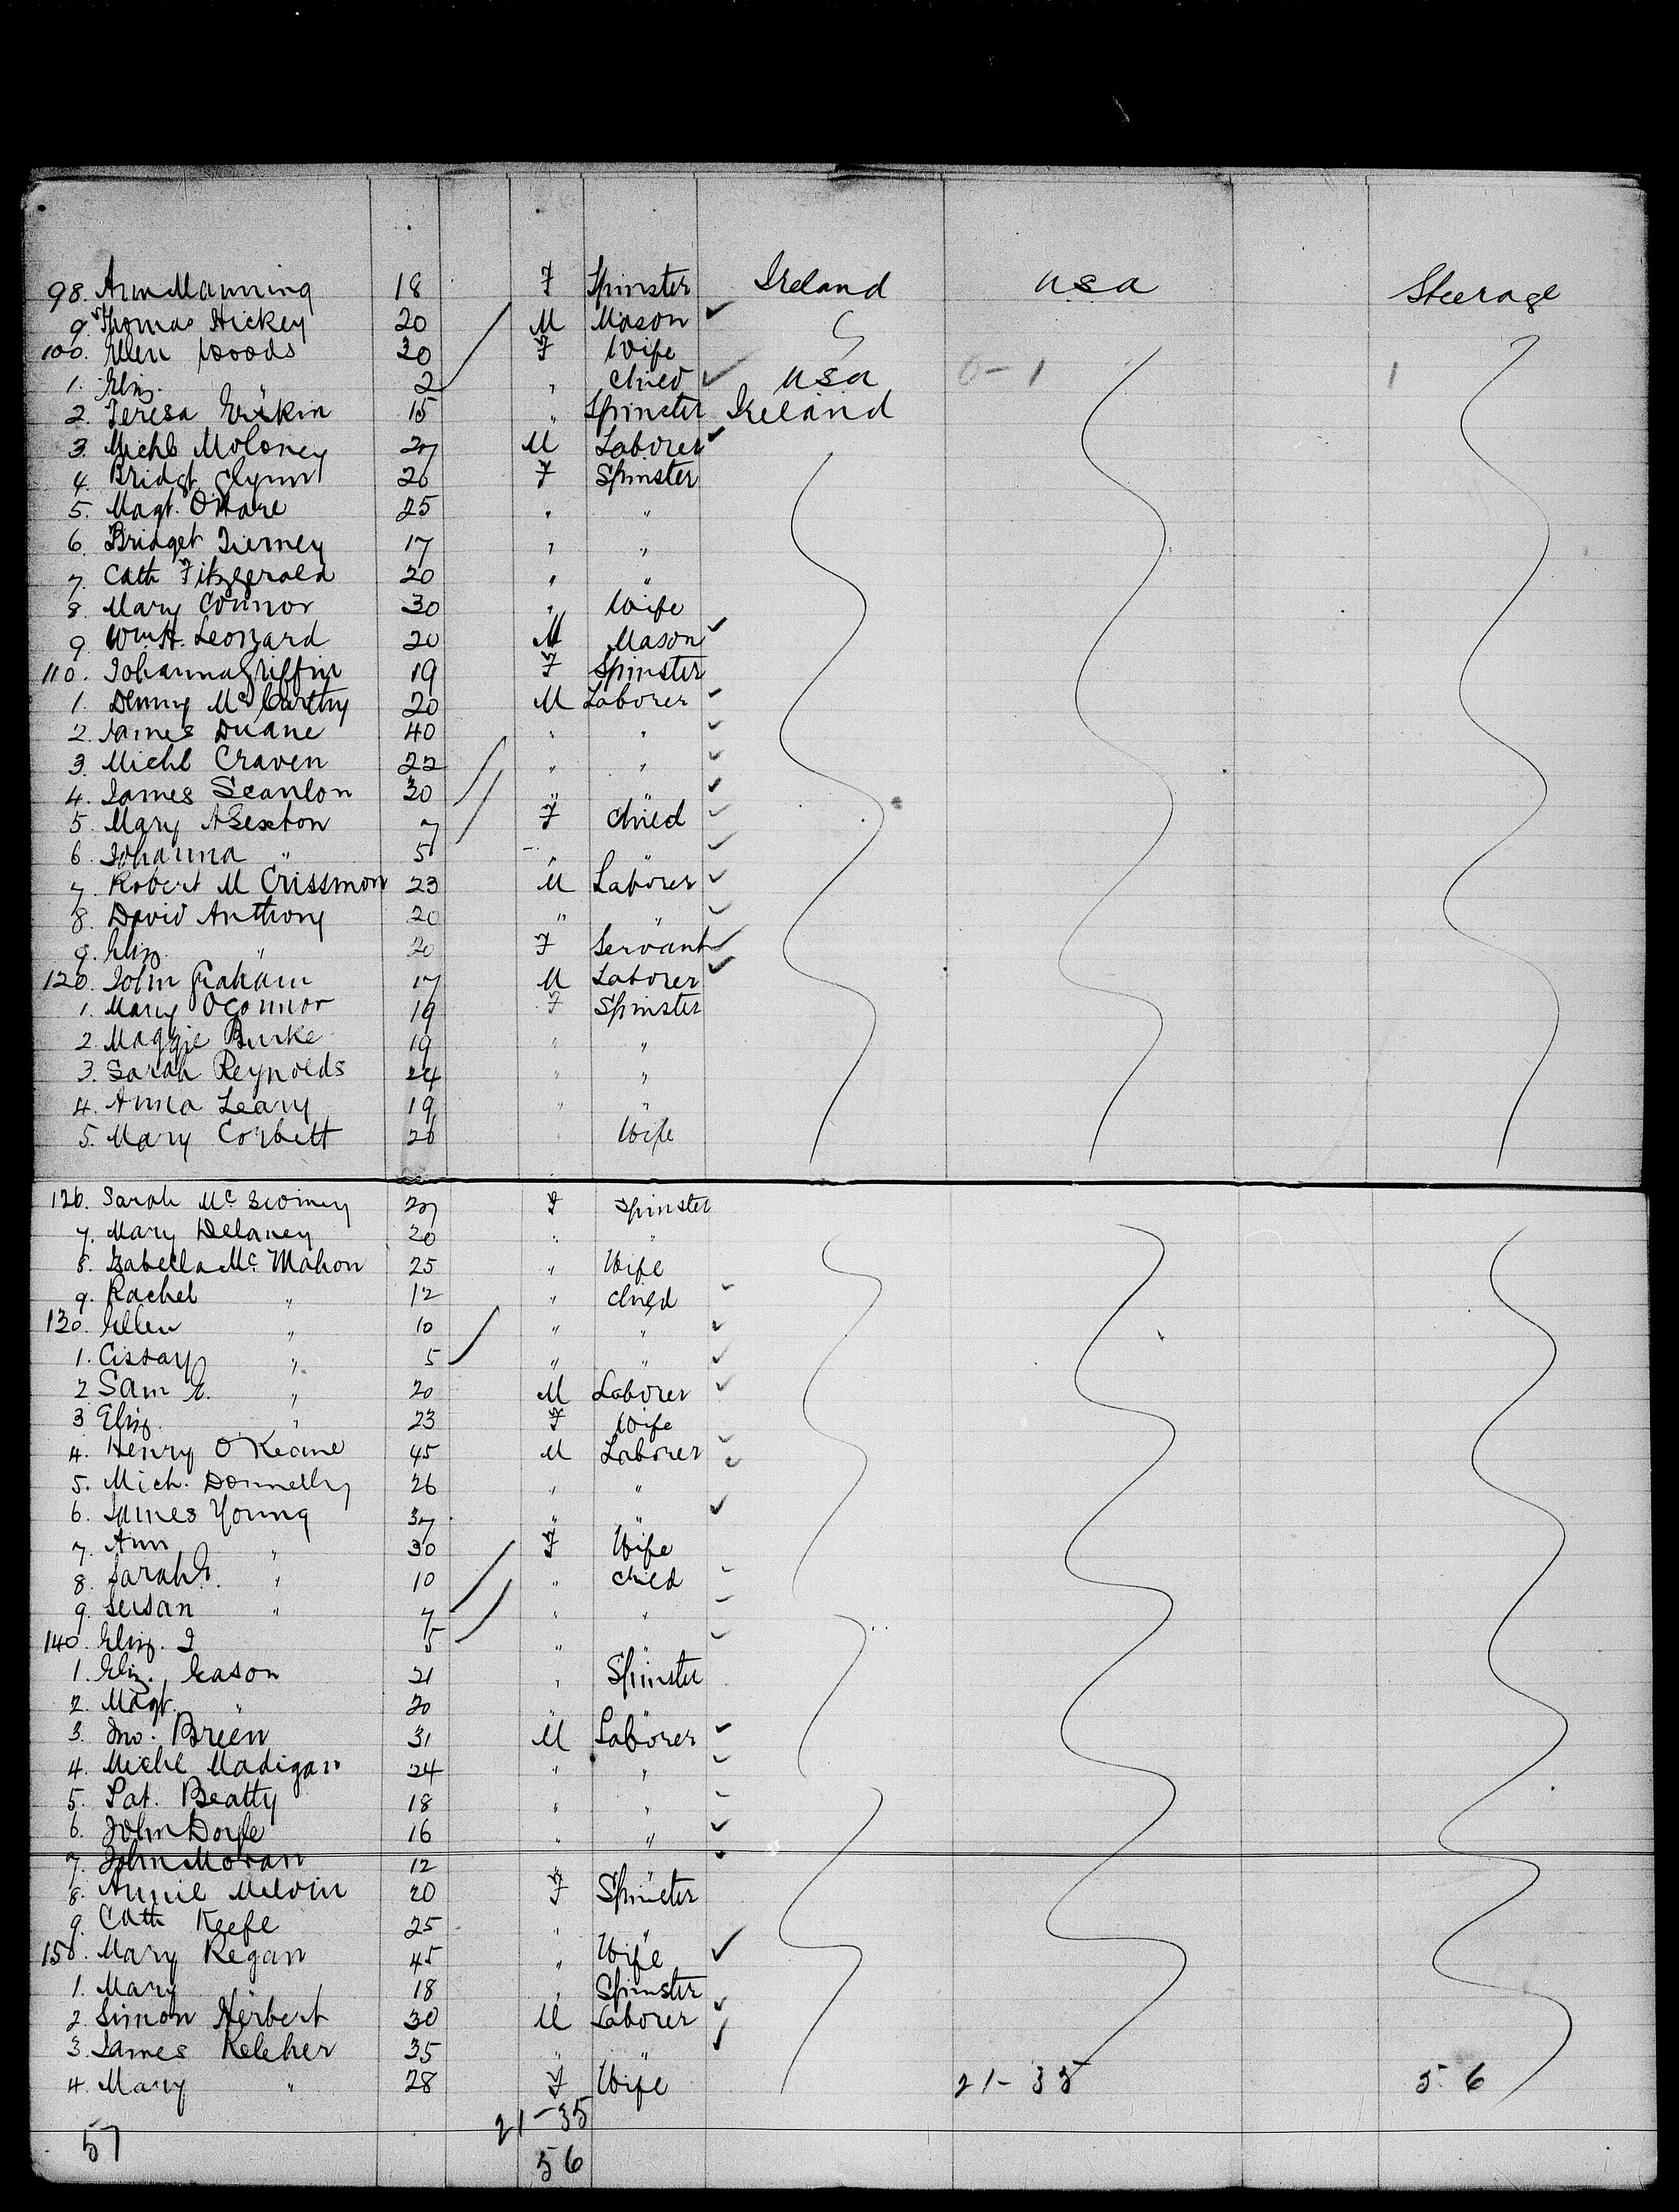 98. Ann Manning 18 F Spinster Ireland USA Steerage
9. Thomas Hickey 20 M Mason
100. Ellen Woods 30 F Wife
1. Eliz. " 2 " Child USA 0-1 1
2. Teresa 15 " Spinster Ireland
3. Michl Moloney 27 M Laborer
4. Bridgt Glynn 26 F Spinster
5. Magt. O'Hare 25 " "
6. Bridget Tierney 17 " "
7. Cath Fitzgerald 20 " "
8. Mary Connor 30 " Wife
9. Wm H. Leonard 20 M Mason
110. Johanna Griffin 19 F Spinster
1. Denny McCarthy 20 M Laborer
2. James Duane 40 " "
3. Michl Craven 22 " "
4. James Scanlon 30 " "
5. Mary A Sexton 7 F Child
6. Johanna " 5 " "
7. Robert M Crissmon 23 M Laborer
8. David Anthony 20 " "
9. Eliz. " 20 F Servant
120. John Graham 17 M Laborer
1. Mary OConnor 19 F Spinster
2. Maggie Burke 19 " "
3. Sarah Reynolds 24 " "
4. Anna Leary 19 " "
5. Mary Corbett 26 " Wife
126. Sarah Mc 27 F Spinster
7. Mary Delaney 20 " "
8. Isabella Mc Mahon 25 " Wife
9. Rachel " 12 " Child
130. Ellen " 10 " "
1. Cissay " 5 " "
2 Sam E. " 20 M Laborer
3 Eliz. " 23 F Wife
4. Henry O'Keane 45 M Laborer
5. Mich. Donnelly 26 " "
6. James Young 37 " "
7. Ann " 30 F Wife
8. Sarah E. " 10 " Child
9. Susan " 7 " "
140. Eliz. J 5 " "
1. Eliz. Eason 21 " Spinster
2. Magt. " 20 " "
3. Jno. Breen 31 M Laborer
4. Michl Madigan 24 " "
5. Pat. Beatty 18 " "
6. John Doyle 16 " "
7. John Moran 12 " "
8. Annie Melvin 20 F Spinster
9. Cath Keefe 25 " "
150. Mary Regan 45 " Wife
1. Mary " 18 " Spinster
2. Simon Herbert 30 M Laborer
3. James Keleher 35 " "
4. Mary " 28 F Wife 21-35 56
57 21-35
56